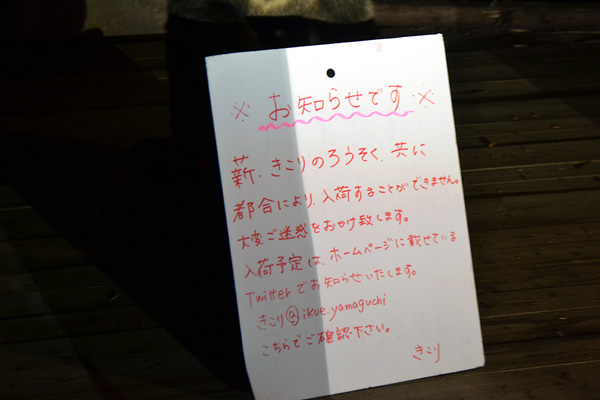 ※お知らせです※
薪、きこりのろうそく、共に
都合により、入荷することができません。
大変ご迷惑をおかけ致します。
入荷予定は、ホームページに載せている
Twitterでお知らせいたします。
きこり@ikue.yamaguchi
こちらでご確認下さい。
きこり